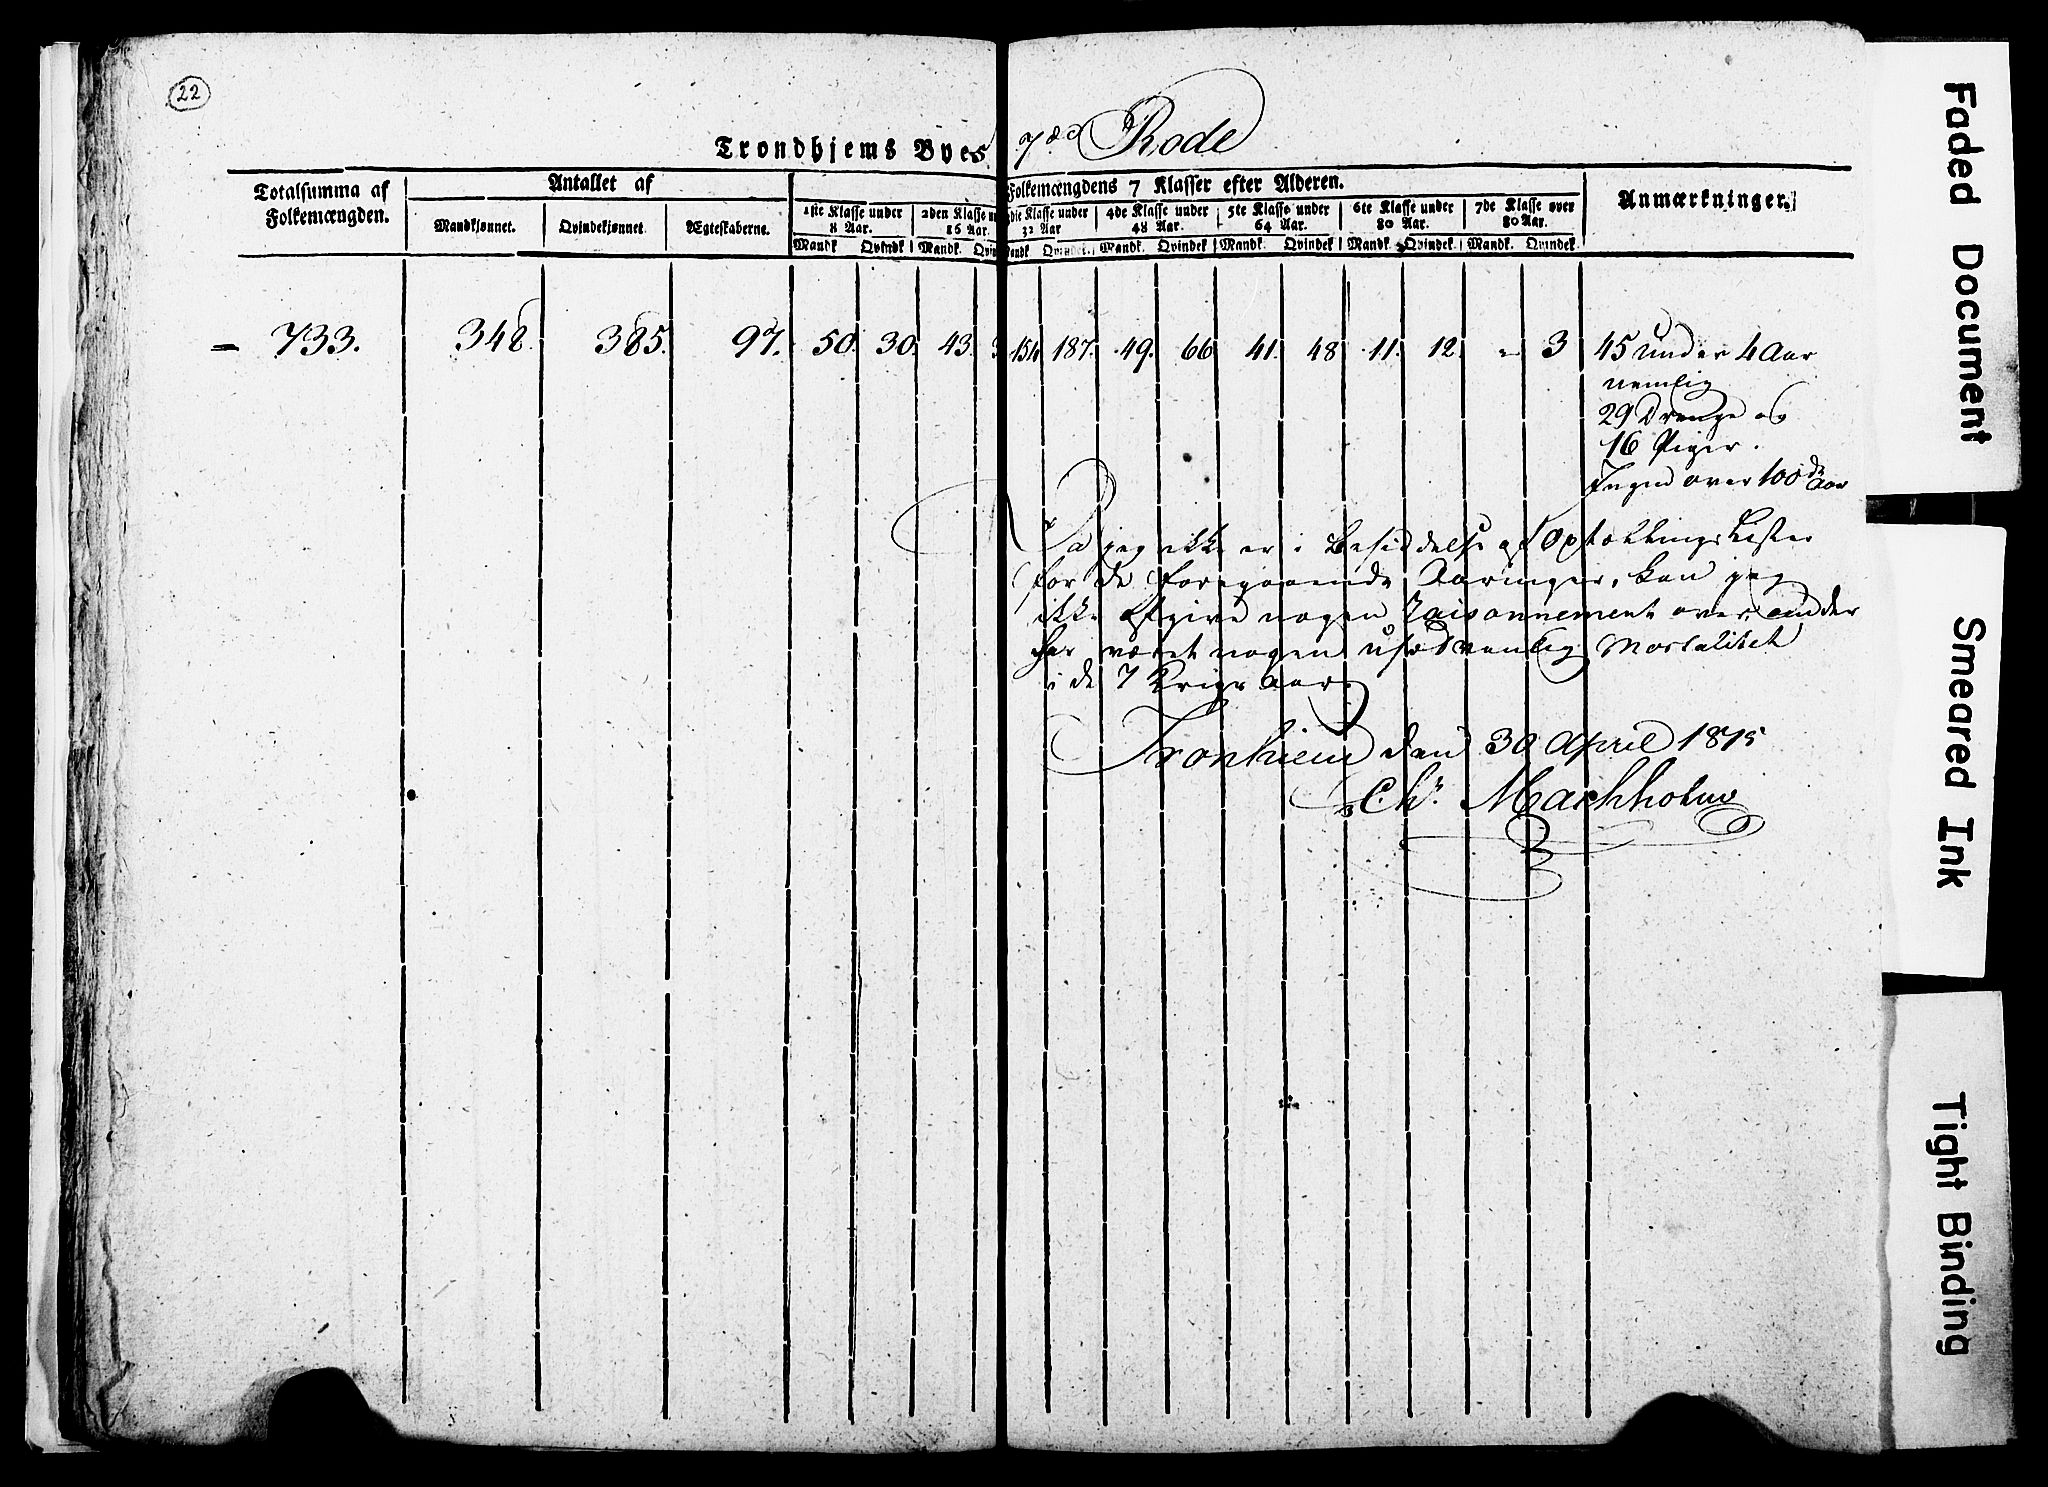 22
Trondhjems Byes 7de Rode
Totalsumma af Folkemængden.
Antallet af
Folkemængdens 7 Klasser efter Alderen.
Anmærkninger.
Mandkjønnet. Qvindekjønnet. Ægteskaberne.
1ste Klasse under 8 Aar.
2den Klasse un
16 Aar.
3die Klasse under 32 Aar
4de Klasse under 48 Aar.
5te Klasse under 64 Aar.
6te Klasse under 80 Aar.
7de Klasse over 80 Aar.
Mandk Qvindk Mandk. Qvin Mandk Qvindek. Mandk. Qvindek Mandk. Qvindek Mandk. Qvindek. Mandk. Qvindek
= 733. 348 385. 97. 50. 30. 43. 3 154 187. 49. 66 41. 48 11. 12. " 3 45 under 4 Aar
nemlig
29 Drenge og
16 Piger.
Ingen over 100de Aar
Da jeg ikke er i Besiddelse af Optællings Lister
for de foregaaende Aaringer, kan jeg
ikke afgive nogen Raisonnement over, om der
har været nogen usædvanlig Mortalitet
i de 7 Krigs Aar.
Tronhiem den 30 April 1815
Chr. Machholm
Faded Document
Smeared Ink
Tight Binding